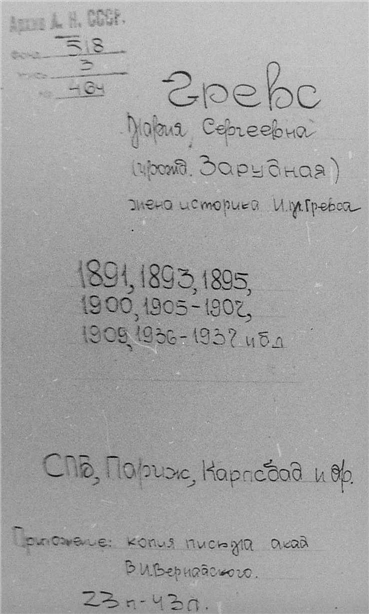 Архив А. Н. СССР.
Фонд 518
Опись 3
№ 464
Гревс
Мария Сергеевна
(урожд. Зарудная)
жена историка И.М.Гревса
1891, 1893, 1895,
1900, 1905-1907,
1909, 1936-1937 и б.д
СПб, Париж, Карлсбад и др.
Приложение: копия письма акад
В.И.Вернадского.
23 п-43л.